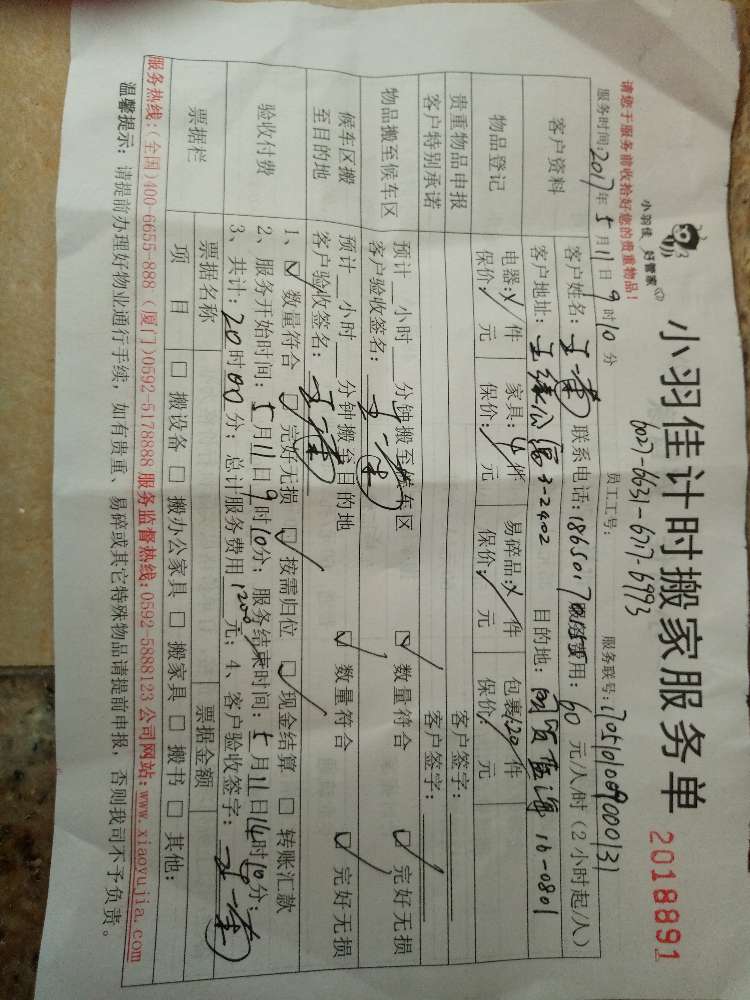 小羽佳 好管家
小羽佳计时搬家服务单 2018891
请您于服务前收拾好您的贵重物品!
6027-6631-6717-6993
服务时间:2017年5月11日9时10分 员工工号: 服务联号:
客户资料
客户姓名: 联系电话: 用:60元/人/时(2小时起/人)
客户地址: 3-2402 目的地: 16-0801
物品登记
电器: 件 家具: 件 易碎品: 件 包裹:20件
保价: 元 保价: 元 保价: 元 保价: 元
贵重物品申报 客户签字:
客户特别承诺 客户签字:
物品搬至候车区
预计 小时 分钟搬至候车区 ☑ 数量符合 ☑ 完好无损
客户验收签名:
候车区搬至目的地
预计 小时 分钟搬至目的地 ☑ 数量符合 ☑ 完好无损
客户验收签名:
验收付费
1、☑ 数量符合 ☑ 完好无损 ☑ 按需归位 ☑ 现金结算 □ 转账汇款
2、服务开始时间:5月11日9时10分;服务结束时间:5月11日14时10分;
3、共计:20时00分;总计服务费用1200元;4、客户验收签字:
票据栏
票据名称 票据金额
项 目 □ 搬设备 □ 搬办公家具 □ 搬家具 □ 搬书 □ 其他:
服务热线:(全国)400-6655-888(厦门)0592-5178888 服务监督热线:0592-5888123 公司网站:www.xiaoyujia.com
温馨提示:请提前办理好物业通行手续,如有贵重、易碎或其它特殊物品请提前申报,否则我司不予负责。